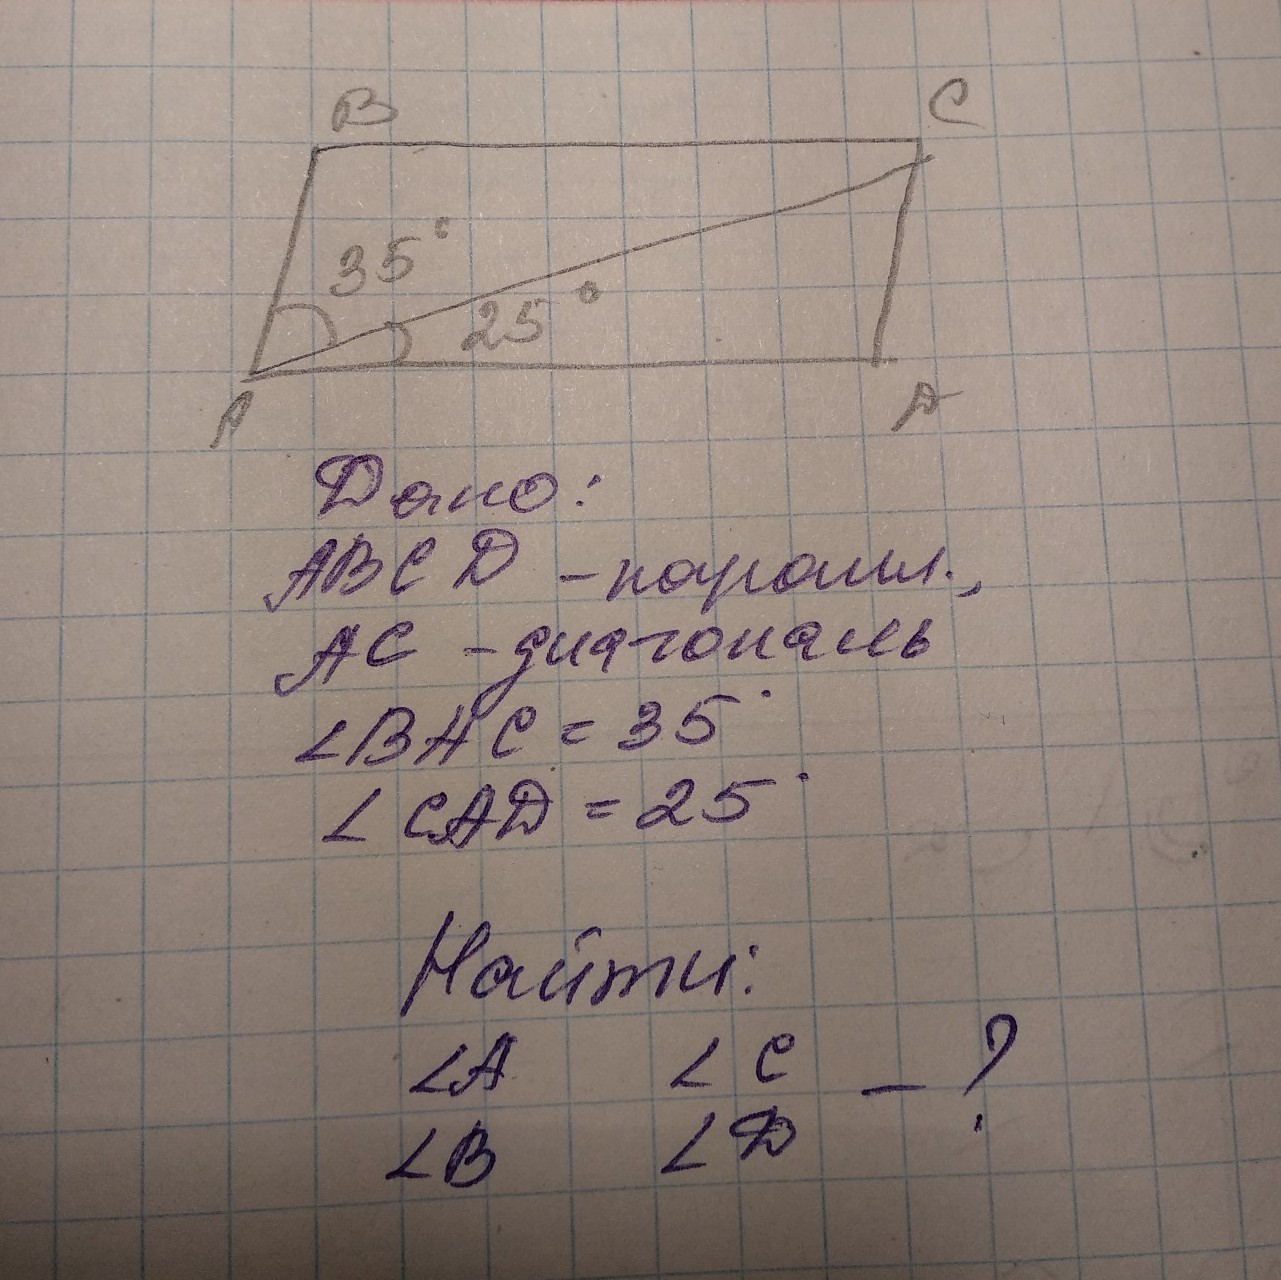 B C
35°
25°
A D
Дано:
ABCD - паралл.,
AC - диагональ
∠BAC = 35°
∠CAD = 25°
Найти:
∠A ∠C - ?
∠B ∠D